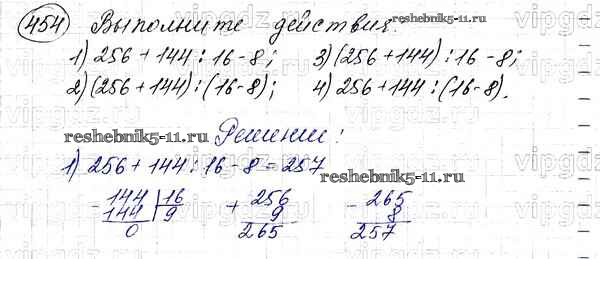 454 Выполните действия.
1) 256 + 144 : 16 - 8; 3) (256 + 144) : 16 - 8;
2) (256 + 144) : (16 - 8); 4) 256 + 144 : (16 - 8).
Решение:
1) 256 + 144 : 16 - 8 = 257
- 144 | 16 + 256 - 265
144 | 9 9 8
0 265 257
reshebnik5-11.ru
reshebnik5-11.ru
vipgdz